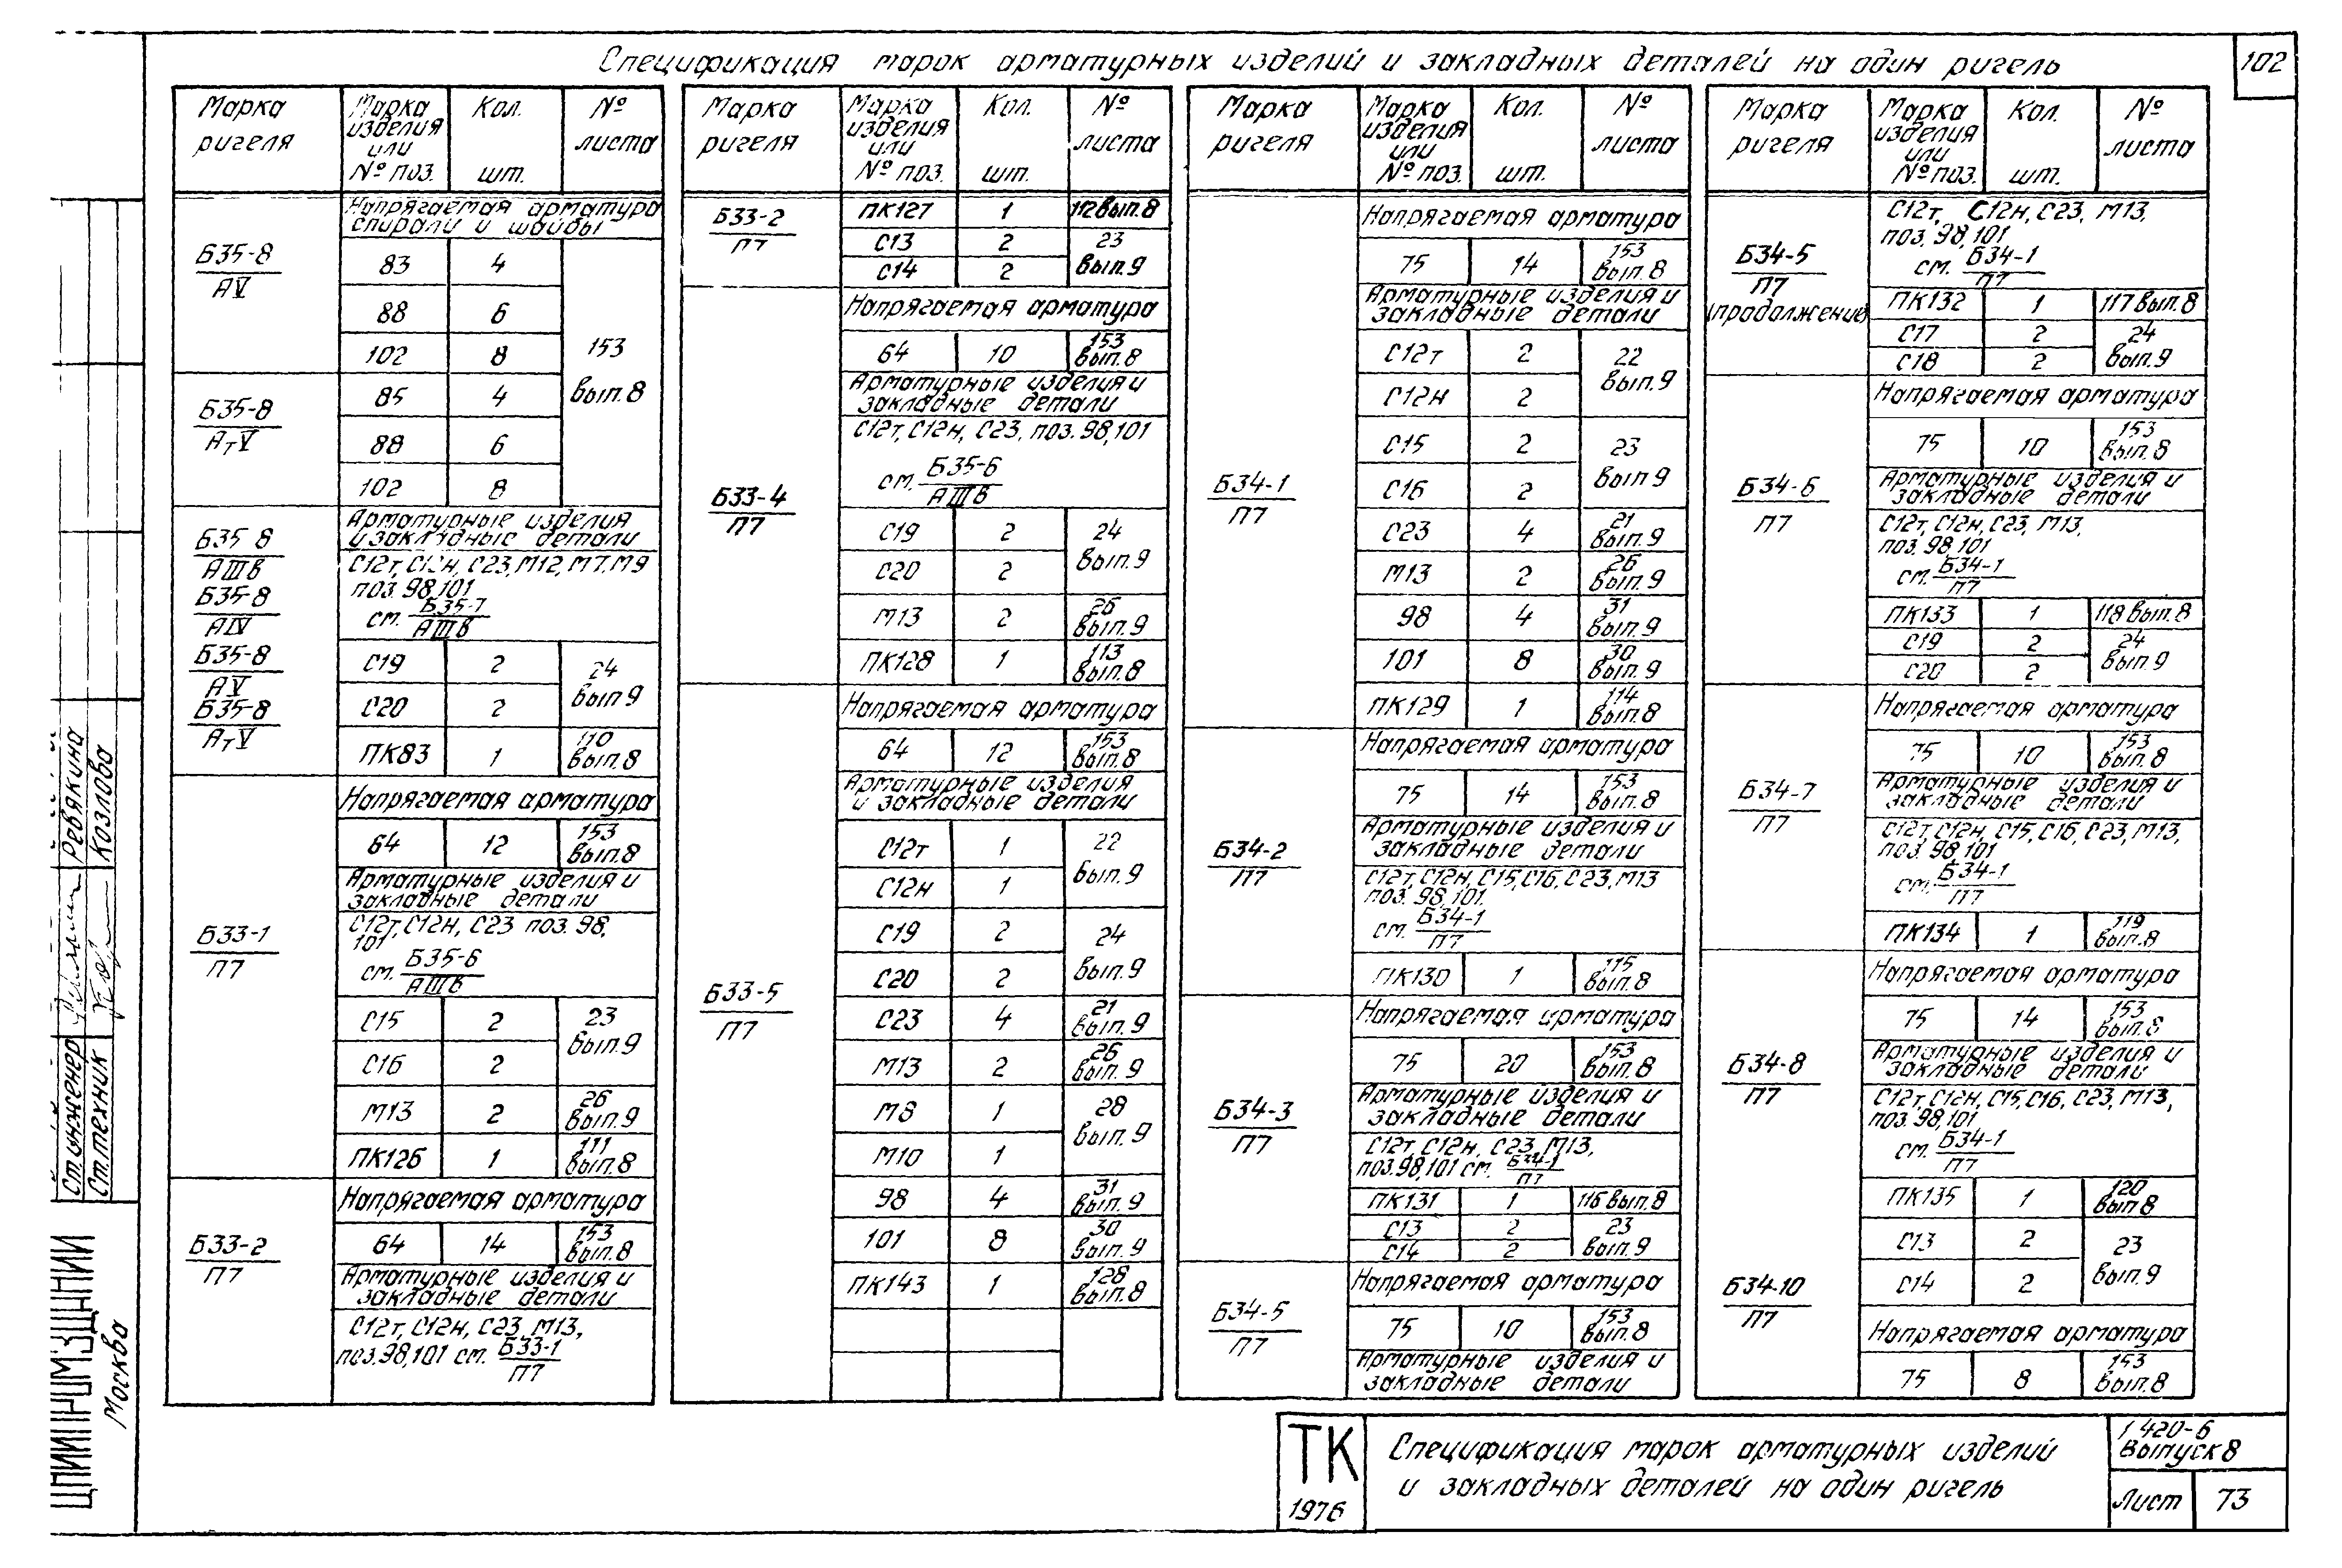 102
Спецификация марок арматурных изделий и закладных деталей на один ригель
Марка ригеля | Марка изделия или № поз. | Кол. шт. | № листа
Б35-8/АV
Напрягаемая арматура спирали и шайбы
83 | 4 | 153 вып.8
88 | 6
102 | 8
Б35-8/АтV
85 | 4
88 | 6
102 | 8
Б35-8/АIIIв
Б35-8/АIV
Б35-8/АV
Б35-8/АтV
Арматурные изделия и закладные детали
С12т, С12н, С23, М12, М7, М9
поз. 98,101
см. Б35-7/АIIIв
С19 | 2 | 24 вып 9
С20 | 2
ПК83 | 1 | 110 вып.8
Б33-1/П7
Напрягаемая арматура
64 | 12 | 153 вып.8
Арматурные изделия и закладные детали
С12т, С12н, С23 поз. 98,
101
см. Б35-6/АIIIв
С15 | 2 | 23 вып.9
С16 | 2
М13 | 2 | 26 вып.9
ПК126 | 1 | 111 вып.8
Б33-2/П7
Напрягаемая арматура
64 | 14 | 153 вып.8
Арматурные изделия и закладные детали
С12т, С12н, С23, М13,
поз.98,101 см. Б33-1/П7
Марка ригеля | Марка изделия или № поз. | Кол. шт. | № листа
Б33-2/П7
ПК127 | 1 | 112 вып.8
С13 | 2 | 23 вып.9
С14 | 2
Б33-4/П7
Напрягаемая арматура
64 | 10 | 153 вып.8
Арматурные изделия и закладные детали
С12т, С12н, С23, поз.98,101
см. Б35-6/АIIIв
С19 | 2 | 24 вып.9
С20 | 2
М13 | 2 | 26 вып.9
ПК128 | 1 | 113 вып.8
Б33-5/П7
Напрягаемая арматура
64 | 12 | 153 вып.8
Арматурные изделия и закладные детали
С12т | 1 | 22 вып.9
С12н | 1
С19 | 2 | 24 вып.9
С20 | 2
С23 | 4 | 21 вып.9
М13 | 2 | 26 вып.9
М8 | 1 | 28 вып.9
М10 | 1
98 | 4 | 31 вып.9
101 | 8 | 30 вып.9
ПК143 | 1 | 128 вып.8
Марка ригеля | Марка изделия или № поз. | Кол. шт. | № листа
Б34-1/П7
Напрягаемая арматура
75 | 14 | 153 вып.8
Арматурные изделия и закладные детали
С12т | 2 | 22 вып.9
С12н | 2
С15 | 2 | 23 вып 9
С16 | 2
С23 | 4 | 21 вып.9
М13 | 2 | 26 вып.9
98 | 4 | 31 вып.9
101 | 8 | 30 вып.9
ПК129 | 1 | 114 вып.8
Б34-2/П7
Напрягаемая арматура
75 | 14 | 153 вып.8
Арматурные изделия и закладные детали
С12т, С12н, С15, С16, С23, М13
поз. 98,101.
см. Б34-1/П7
ПК130 | 1 | 115 вып.8
Б34-3/П7
Напрягаемая арматура
75 | 20 | 153 вып.8
Арматурные изделия и закладные детали
С12т, С12н, С23, М13,
поз.98,101 см. Б34-1/П7
ПК131 | 1 | 116 вып.8
С13 | 2 | 23 вып.9
С14 | 2
Б34-5/П7
Напрягаемая арматура
75 | 10 | 153 вып.8
Арматурные изделия и закладные детали
Марка ригеля | Марка изделия или № поз. | Кол. шт. | № листа
Б34-5/П7 (продолжение)
С12т, С12н, С23, М13,
поз. 98,101
см. Б34-1/П7
ПК132 | 1 | 117 вып.8
С17 | 2 | 24 вып.9
С18 | 2
Б34-6/П7
Напрягаемая арматура
75 | 10 | 153 вып.8
Арматурные изделия и закладные детали
С12т, С12н, С23, М13,
поз. 98,101
см. Б34-1/П7
ПК133 | 1 | 118 вып.8
С19 | 2 | 24 вып.9
С20 | 2
Б34-7/П7
Напрягаемая арматура
75 | 10 | 153 вып.8
Арматурные изделия и закладные детали
С12т, С12н, С15, С16, С23, М13,
поз. 98,101
см. Б34-1/П7
ПК134 | 1 | 119 вып.8
Б34-8/П7
Напрягаемая арматура
75 | 14 | 153 вып.8
Арматурные изделия и закладные детали
С12т, С12н, С15, С16, С23, М13,
поз. 98,101
см. Б34-1/П7
ПК135 | 1 | 120 вып 8
С13 | 2 | 23 вып.9
С14 | 2
Б34-10/П7
Напрягаемая арматура
75 | 8 | 153 вып.8
Ст.инженер Ревякина
Ст.техник Козлова
Москва
ТК
1976
Спецификация марок арматурных изделий
и закладных деталей на один ригель
1 420-6
Выпуск 8
Лист 73